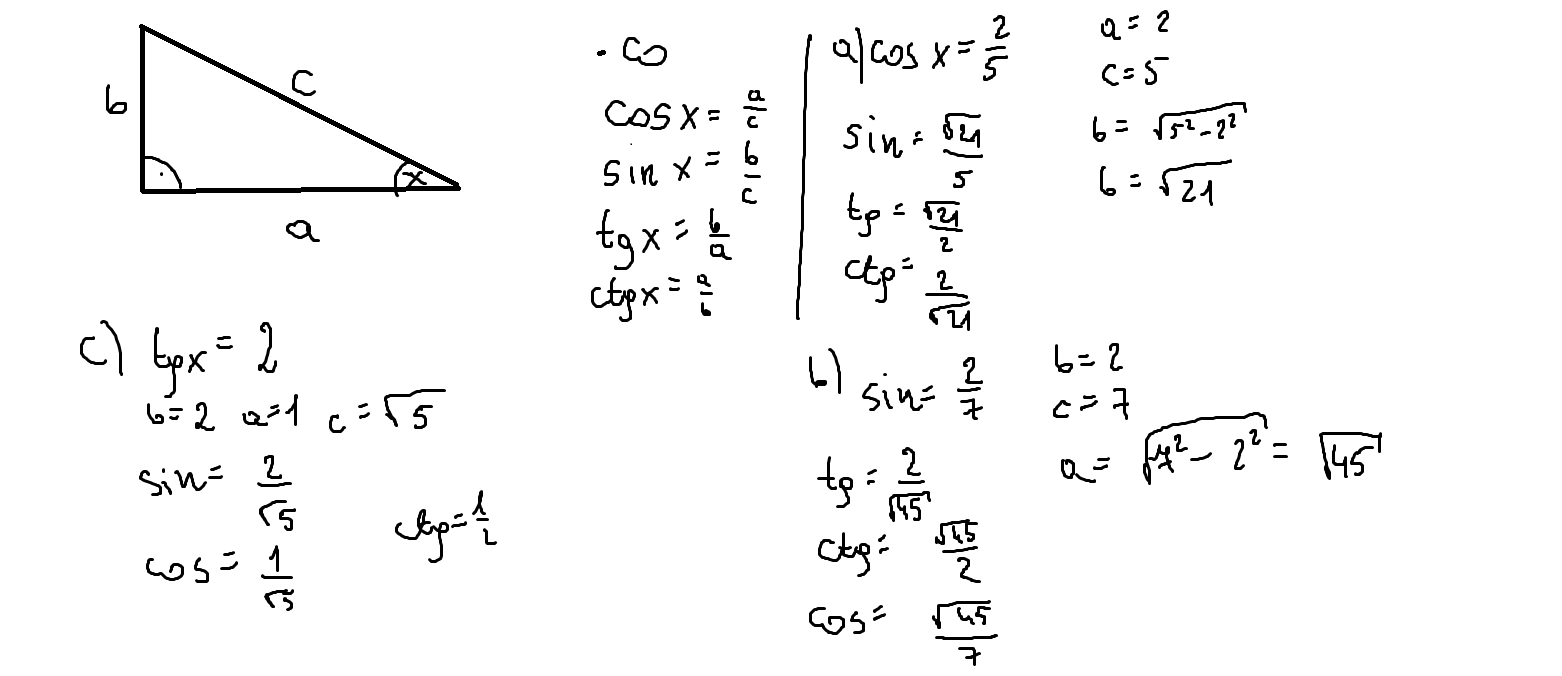 b
c
a
x
· co
cos x = a/c
sin x = b/c
tg x = b/a
ctg x = a/b
a) cos x = 2/5
sin = √21/5
tg = √21/2
ctg = 2/√21
a = 2
c = 5
b = √5² - 2²
b = √21
c) tg x = 2
b = 2 a = 1 c = √5
sin = 2/√5
cos = 1/√5
ctg = 1/2
b) sin = 2/7
tg = 2/√45
ctg = √45/2
cos = √45/7
b = 2
c = 7
a = √7² - 2² = √45